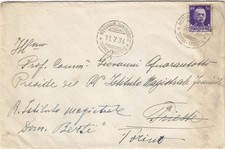 Ill.mo
11.7.34
Prof. Comm. Giovanni Quarantotto
Preside del R. Istituto Magistrale Femminile
R. Istituto magistrale
Trieste
Dom. Berti
Torino